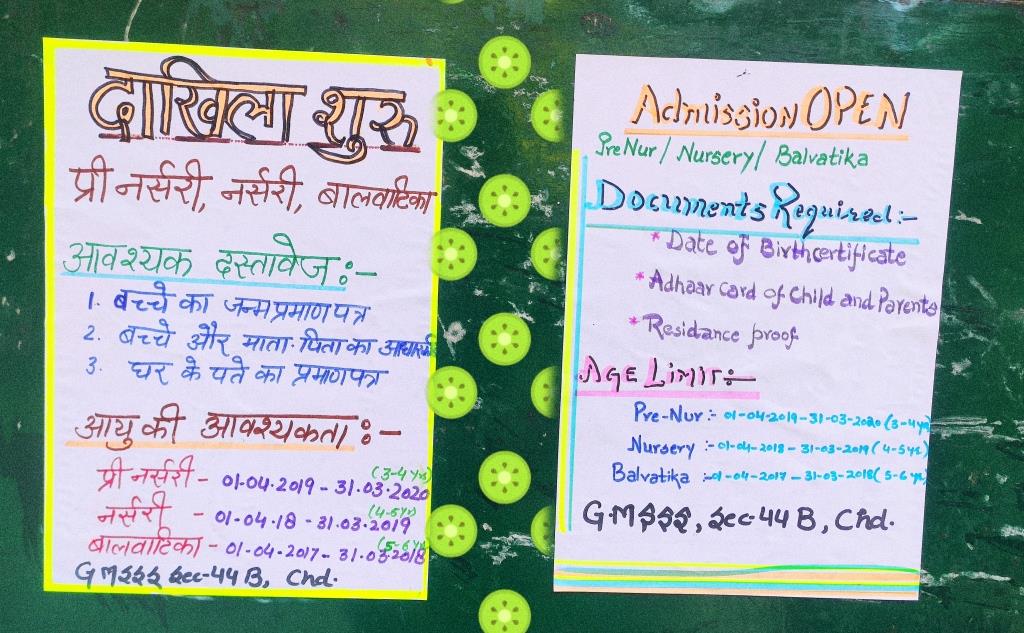 दाखिला शुरू
प्री नर्सरी, नर्सरी, बालवाटिका
आवश्यक दस्तावेज :-
1. बच्चे का जन्म प्रमाण पत्र
2. बच्चे और माता-पिता का आधारकार्ड
3. घर के पते का प्रमाणपत्र
आयु की आवश्यकता :-
प्री नर्सरी - 01-04-2019 - 31.03.2020 (3-4 yrs)
नर्सरी - 01-04-18 - 31.03.2019 (4-5 yr)
बालवाटिका - 01-04-2017 - 31-03-2018 (5-6 yr)
GMSSS Sec-44 B, Chd.
Admission OPEN
Pre Nur / Nursery / Balvatika
Documents Required :-
* Date of Birth certificate
* Adhaar card of Child and Parents
* Residance proof
AGE LIMIT :-
Pre-Nur :- 01-04-2019 - 31-03-2020 (3-4 yrs)
Nursery :- 01-04-2018 - 31-03-2019 (4-5 yr)
Balvatika :- 01-04-2017 - 31-03-2018 (5-6 yr)
GMSSS, Sec-44 B, Chd.